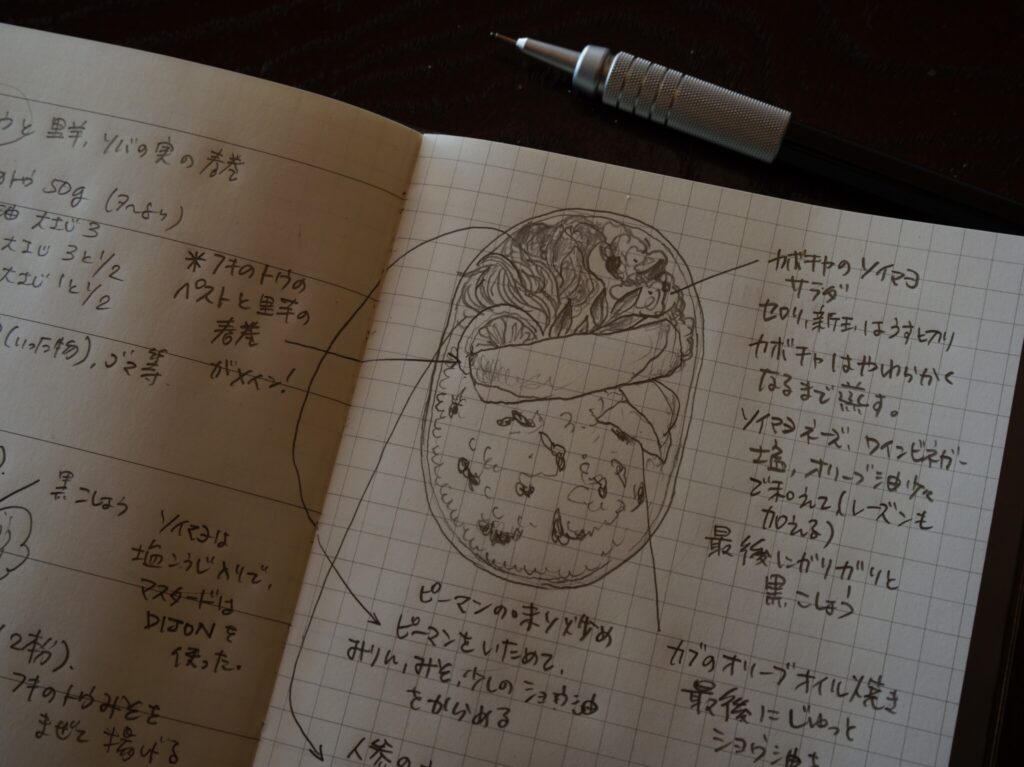 ウと 里芋、ソバの実の春巻
のトウ 50g
油 大さじ3
大さじ 3と1/2
大さじ 1と1/2
(いった物)、ゴマ等
※フキのトウの
ペストと里芋の
春巻
がメイン!
黒こしょう
ソイマヨは
塩こうじ入りで、
マスタードは
DIJONを
使った。
2本分).
フキのトウみそを
まぜて 揚げる
カボチャの ソイマヨ
サラダ
セロリ、新玉、はうすぎり
カボチャはやわらかく
なるまで 蒸す。
ソイマヨネーズ、ワインビネガー
塩、オリーブ油少々
で和えて(レーズンも
加える)
最後にガリガリと
黒こしょう
ピーマンの味りん炒め
ピーマンをいためて、
みりん、みそ、少しのショウ油
をからめる
カブのオリーブオイル焼き
最後にじゅっと
ショウ油を
人参の